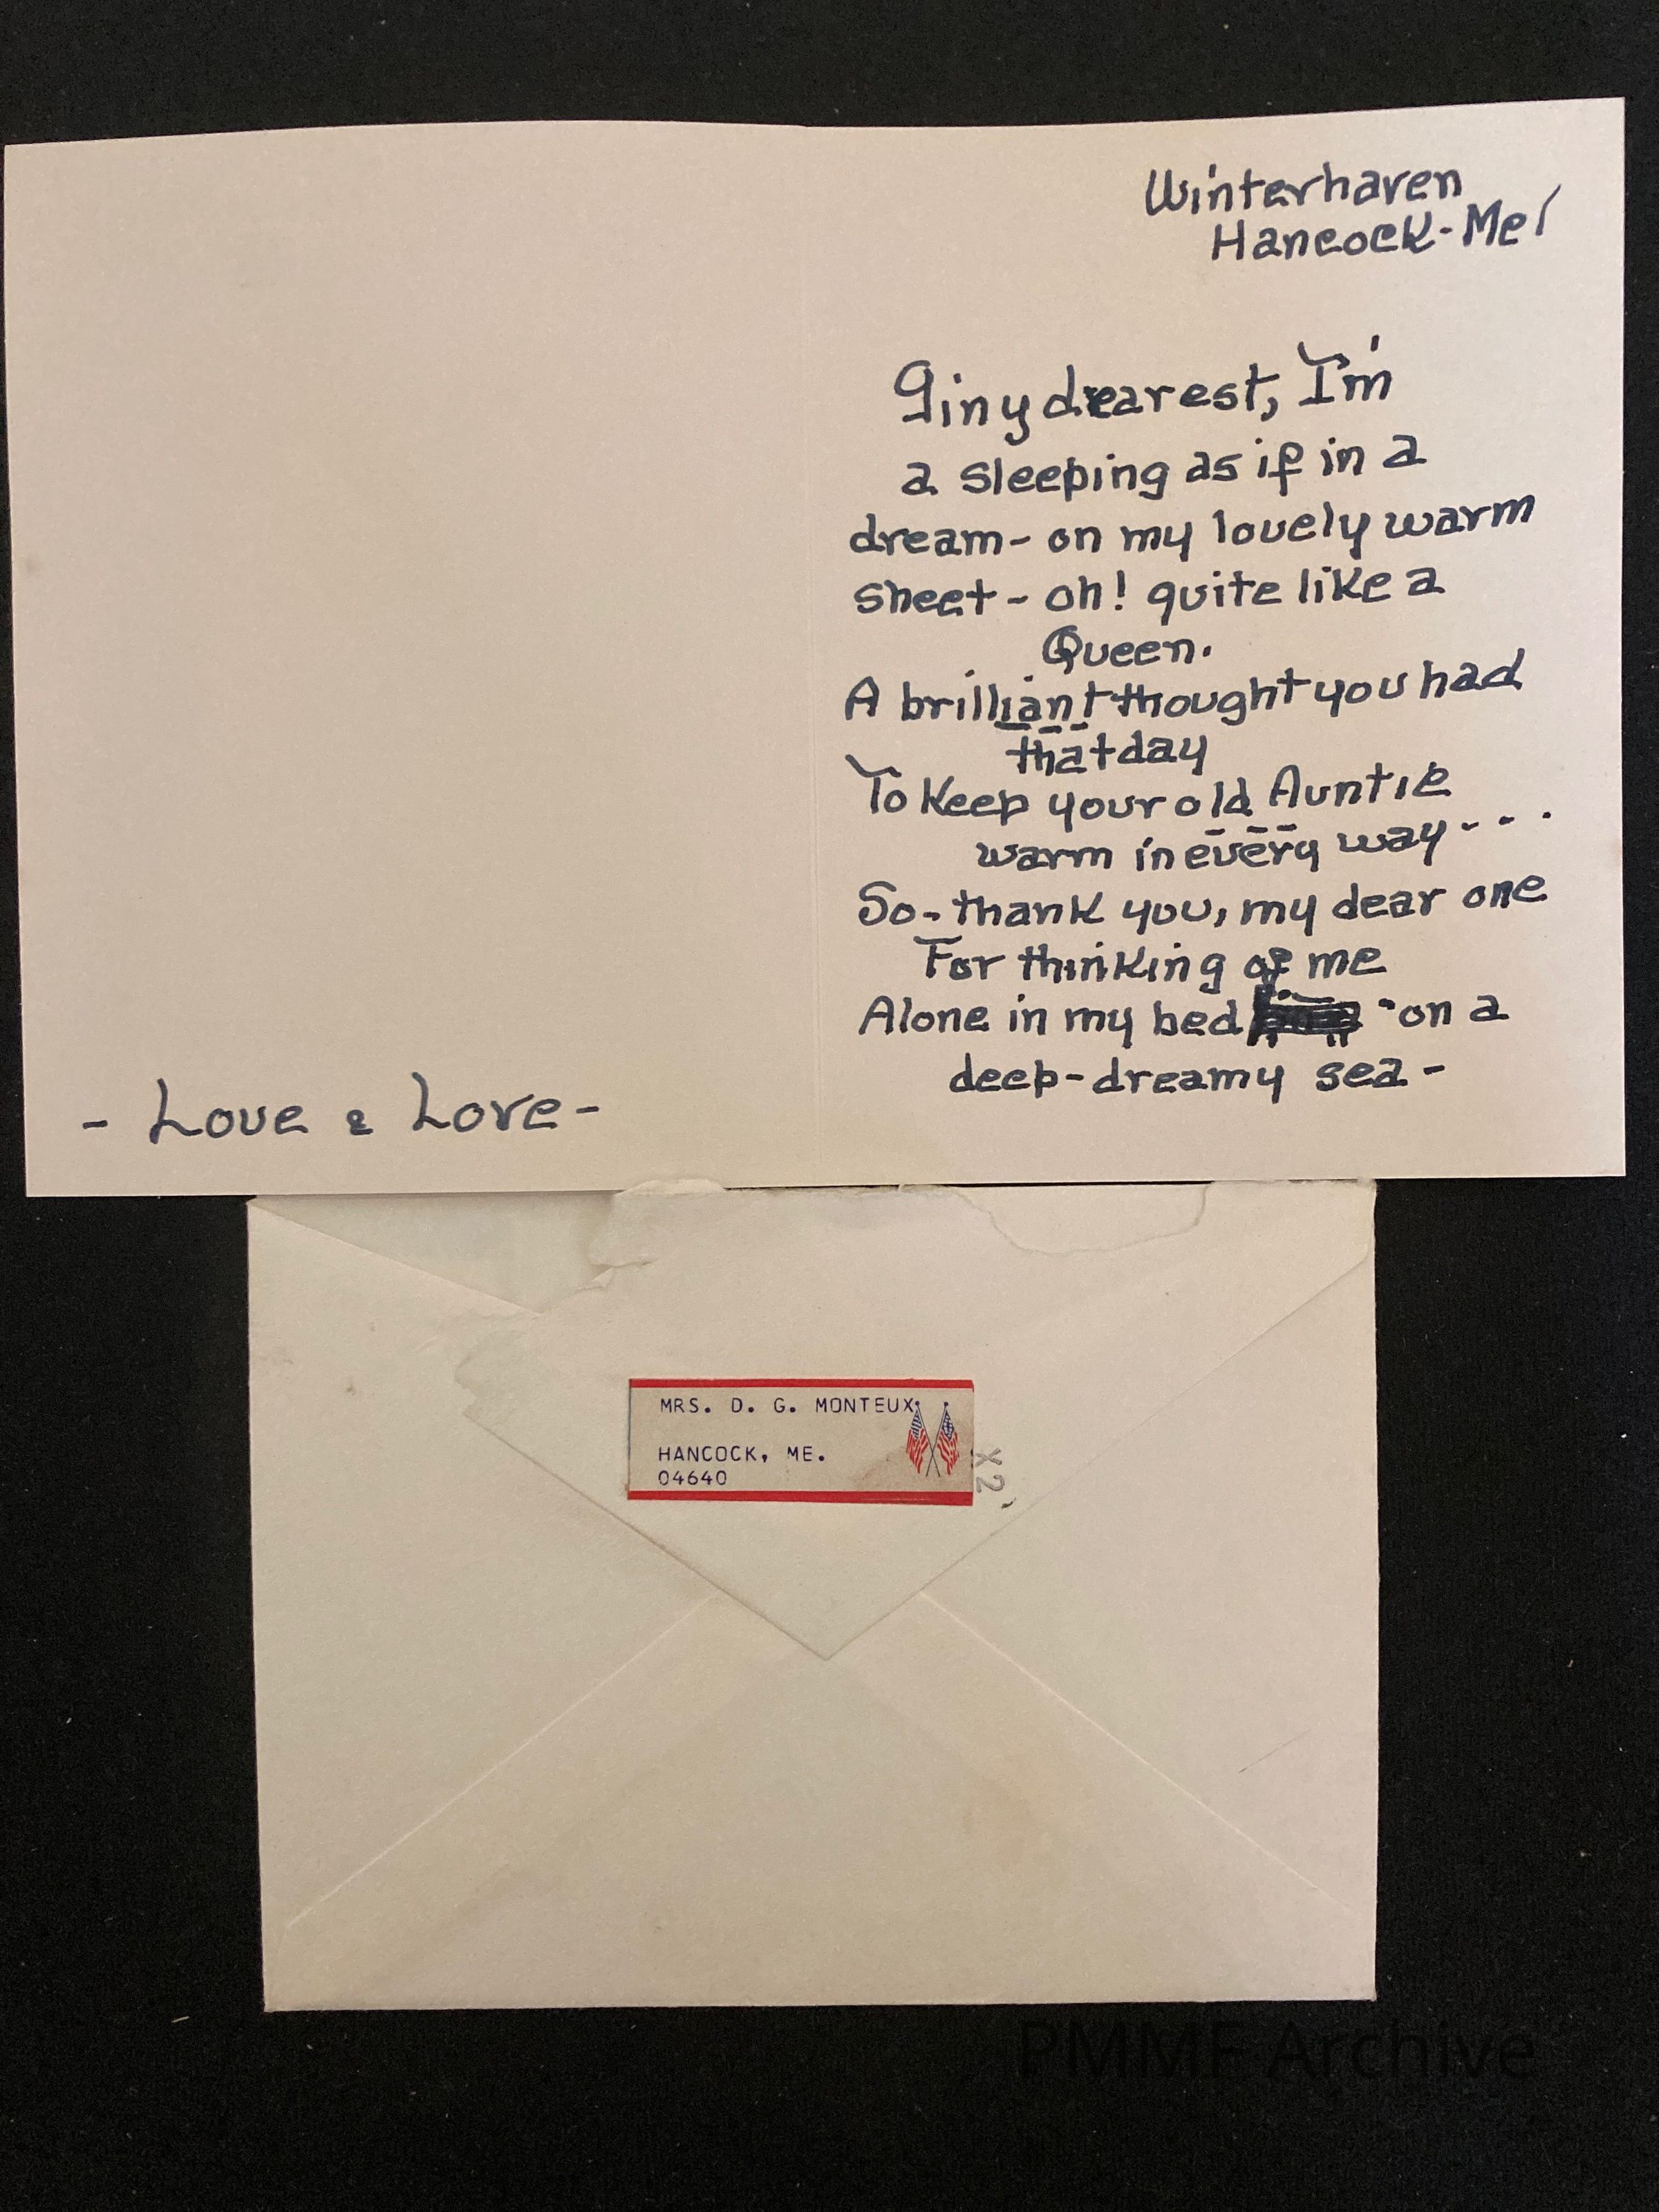 Winterhaven
Hancock-Me/
Giny dearest, I'm
a sleeping as if in a
dream- on my lovely warm
sheet- oh! quite like a
Queen.
A brilliant thought you had
that day
To Keep your old Auntie
warm in every way - - - .
So- thank you, my dear one
For thinking of me
Alone in my bed - on a
deep-dreamy sea -
- Love & Love -
MRS. D. G. MONTEUX
HANCOCK, ME.
04640
X2
PMMF Archive